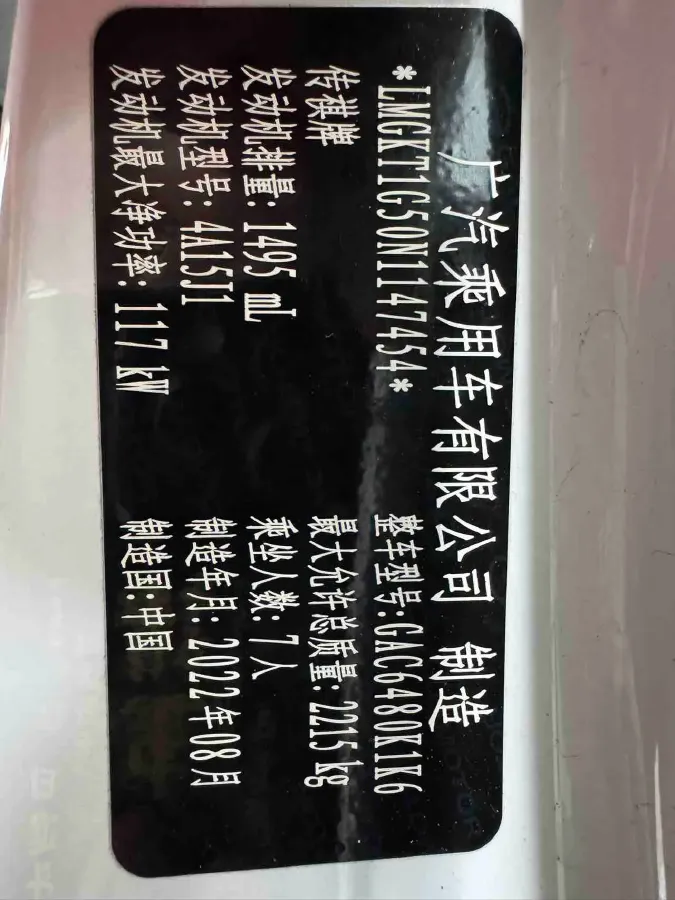 广汽乘用车有限公司 制造
*LMGKT1G50N1147454* 整车型号:GAC6480K1K6
传祺牌 最大允许总质量: 2215 kg
发动机排量: 1495 mL 乘坐人数: 7人
发动机型号: 4A15J1 制造年月: 2022年08月
发动机最大净功率: 117 kW 制造国: 中国